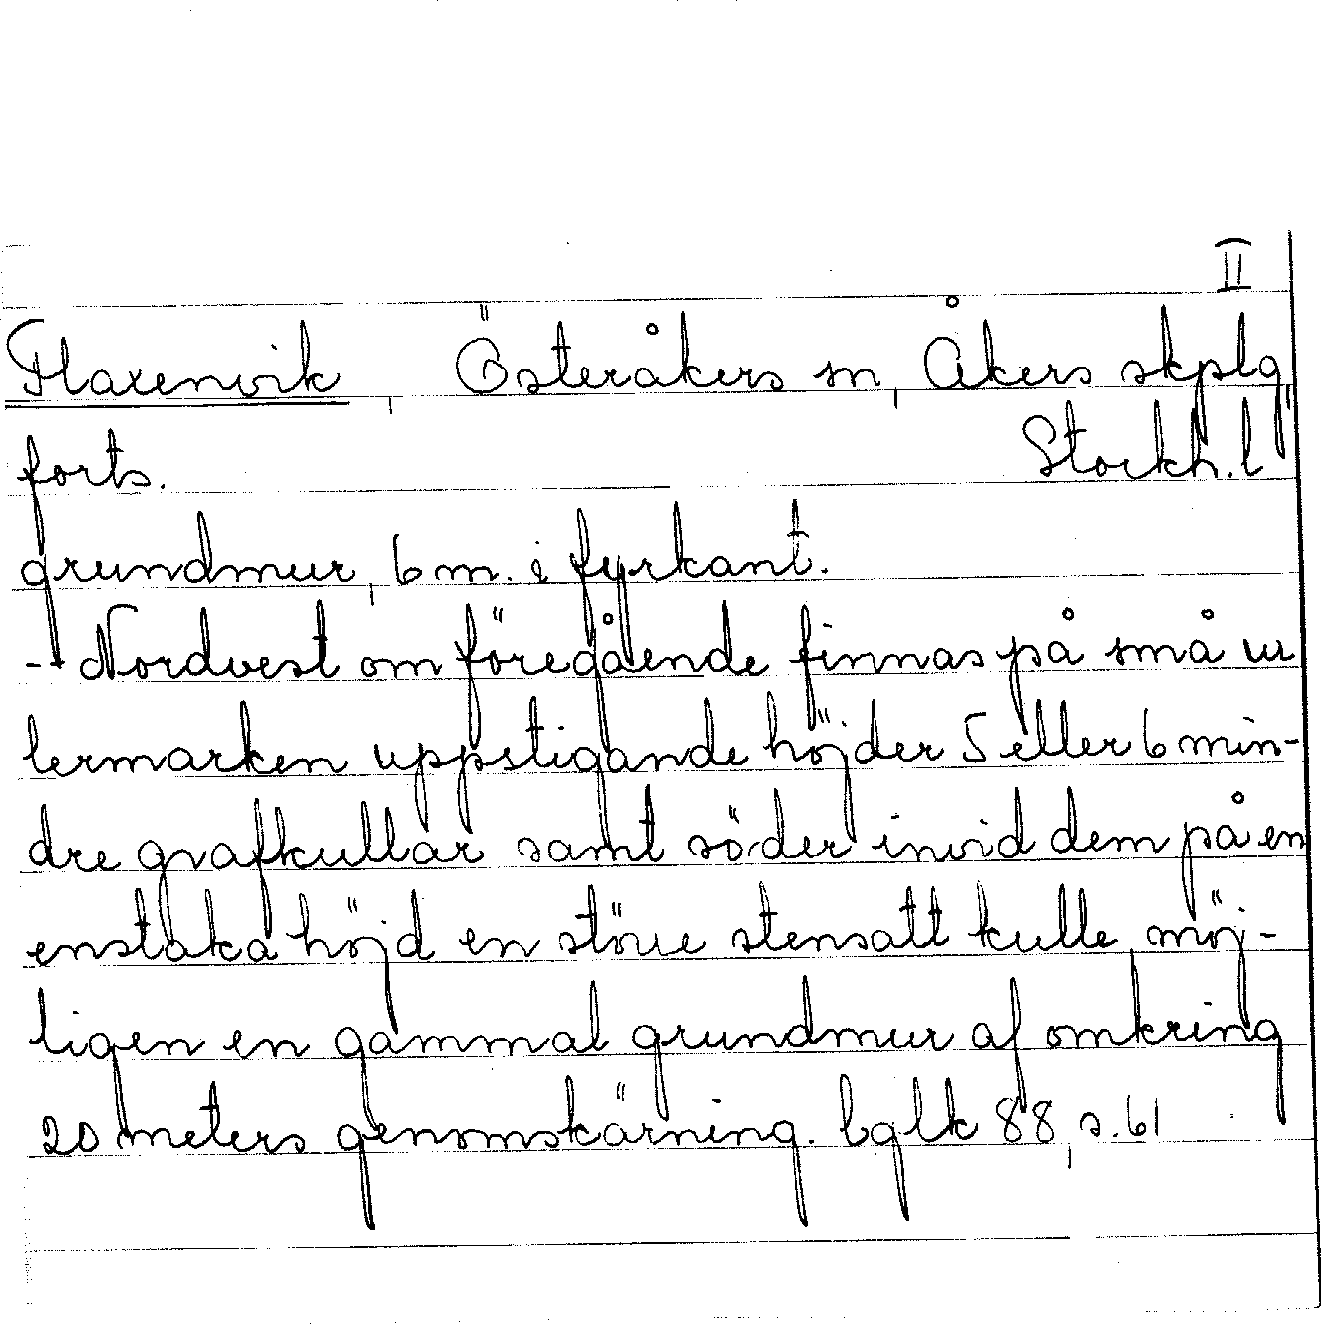 II
Flaxenvik, Österåkers sn, Åkers skplg,
forts. Stockh. l
grundmur, 6 m. i fyrkant.
-- Nordvest om föregående finnas på små ur
lermarken uppstigande höjder 5 eller 6 min-
dre grafkullar samt söder invid dem på en
enstaka höjd en större stensatt kulle, möj-
ligen en gammal grundmur af omkring
20 meters genomskärning. bglk 88, s. 61